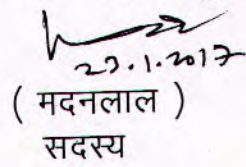 23.1.2017
( मदनलाल )
सदस्य